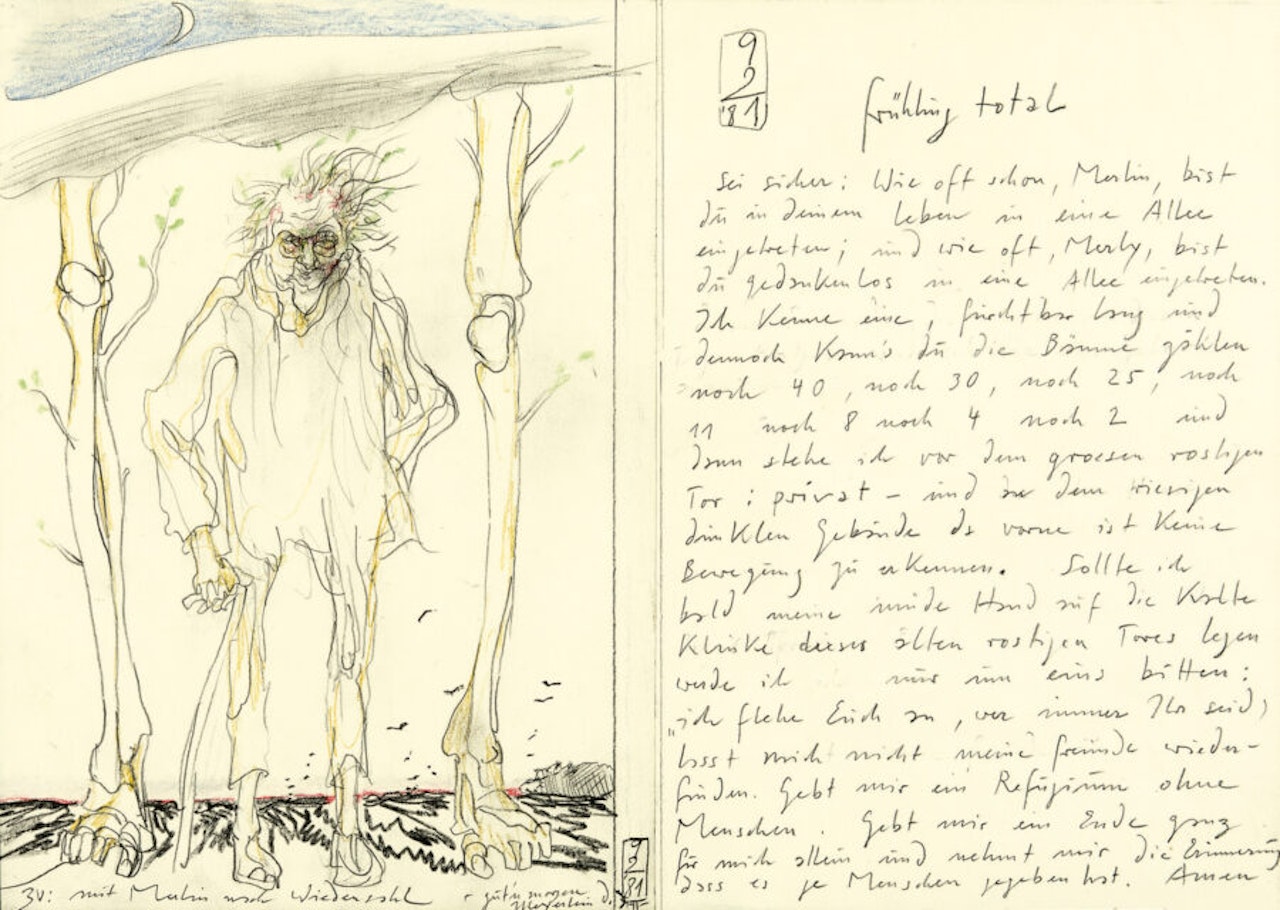 zu: mit Merlin nach Wiedensahl
- gut'n morgen
9
2
81
9
2
'81
frühling total
sei sicher: Wie oft schon, Merlin, bist
du in deinem Leben in eine Allee
eingetreten; und wie oft, Merly, bist
du gedankenlos in eine Allee eingetreten.
Ich Kenne eine, furchtbar lang und
dennoch Kann's du die Bäume zählen
noch 40, noch 30, noch 25, noch
11 noch 8 noch 4 noch 2 und
dann stehe ich vor dem grossen rostigen
Tor: privat - und an dem riesigen
dunklen Gebäude da vorne ist Keine
Bewegung zu erKennen. Sollte ich
bald meine müde Hand auf die Kalte
Klinke dieses alten rostigen Tores legen
werde ich nur um eins bitten:
"ich flehe Euch an, wer immer Ihr seid,
lasst mich nicht meine freunde wieder-
finden. Gebt mir ein Refugium ohne
Menschen. Gebt mir ein Ende ganz
für mich allein und nehmt mir die Erinnerung
dass es je Menschen gegeben hat. Amen